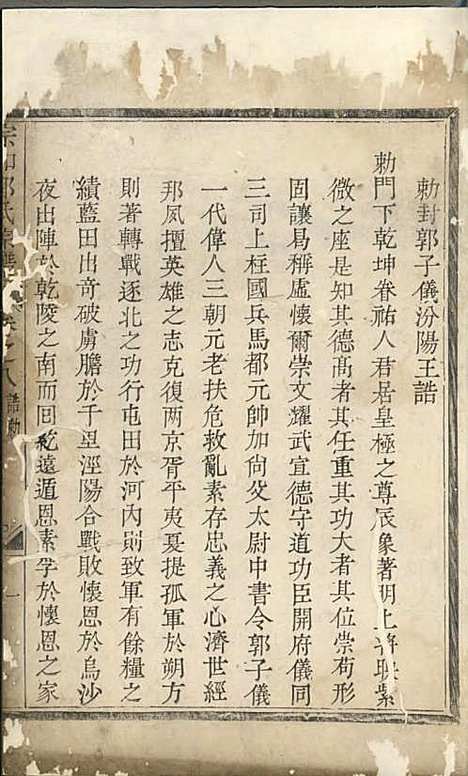 勅封郭子儀汾陽王誥
勅門下乾坤眷祐人君居皇極之尊辰象著明上將映紫
微之座是知其德高者其任重其功大者其位崇苟形
固讓易稱虛懷爾崇文耀武宣德守道功臣開府儀同
三司上柱國兵馬都元帥加尚父太尉中書令郭子儀
一代偉人三朝元老扶危救亂素存忠義之心濟世經
邦夙擅英雄之志克復两京胥平夷夏提孤軍於朔方
則著轉戰逐北之功行屯田於河內則致軍有餘糧之
績藍田出奇破虜膽於千里涇陽合戰敗懷恩於烏沙
夜出陣於乾陵之南而回紇遠遁恩素孚於懷恩之家
郭氏宗譜
誥勅
一